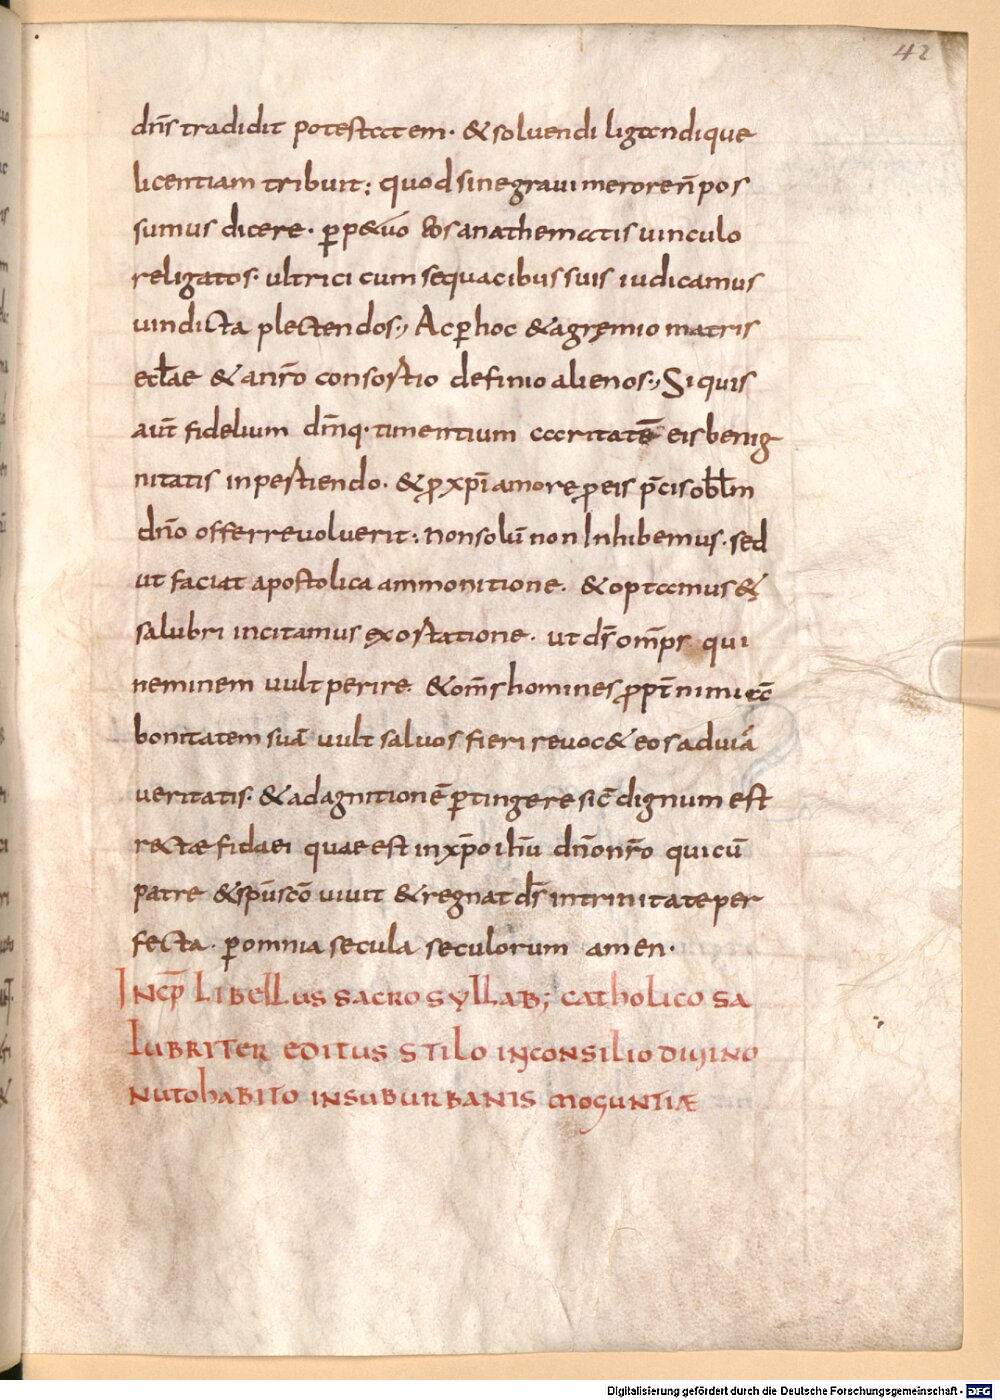 42
dn̄s tradidit potestatem· & soluendi ligandique
licentiam tribuit; quod sine graui merore n̄ pos
sumus dicere· ꝑp&uo eos anathematis uinculo
religatos· ultrici cum sequacibus suis iudicamus
uindicta plectendos·, Ac ꝑ hoc & a gręmio matris
eccl̄ae & a nr̄o consortio definio alienos·, Si quis
aut̄ fidelium dm̄q· timentium caritatē eis benig
nitatis inpestiendo· & ꝓ xp̄i amore ꝓ eis p̄cis obl̄m
dn̄o offerre uoluerit; non solū non Inhibemus· sed
ut faciat apostolica ammonitione· & optamus &
salubri incitamus exostatione· ut ds̄ om̄ps qui
neminem uult perire· & om̄s homines ꝓpt̄ nimiā
bonitatem suā uult saluos fieri reuoc& eos ad uiā
ueritatis· & ad agnitionē ꝑtingere sic̄ dignum est
rectae fidaei quae est in xp̄o ih̄u dn̄o nr̄o qui cū
patre & sp̄u sc̄o uiuit & regnat ds̄ in trinitate per
fecta· ꝑ omnia secula seculorum amen·
INCP̄ LIBELLUS SACROSYLLAB; CATHOLICO SA
LUBRITER EDITUS STILO IN CONSILIO DIUINO
NUTO HABITO IN SUBURBANIS MOGUNTIÆ
Digitalisierung gefördert durch die Deutsche Forschungsgemeinschaft - DFG